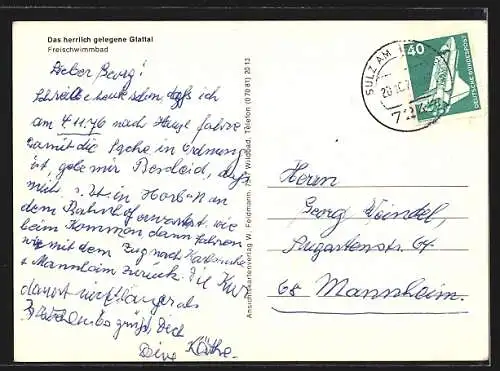 Das herrlich gelegene Glattal
Freischwimmbad
Lieber Georg!
Schreibe heute schon, daß ich
am 4.11.76 nach Hause fahre
damit die Sache in Ordnung
ist, gebe mir Bescheid, daß
mich in Horb an
dem Bahnhof erwartest. wir
beim Kommen dann fahren
wir mit dem Zug nach Karlsruhe
+ Mannheim zurück. Die Kur
dauert nicht länger als
grüßt Dich
Deine Käthe.
Ansichtskartenverlag W. Feldmann, 7547 Wildbad, Telefon (0 70 81) 20 13
SULZ AM
40
DEUTSCHE BUNDESPOST
Herrn
Georg
64
68 Mannheim.